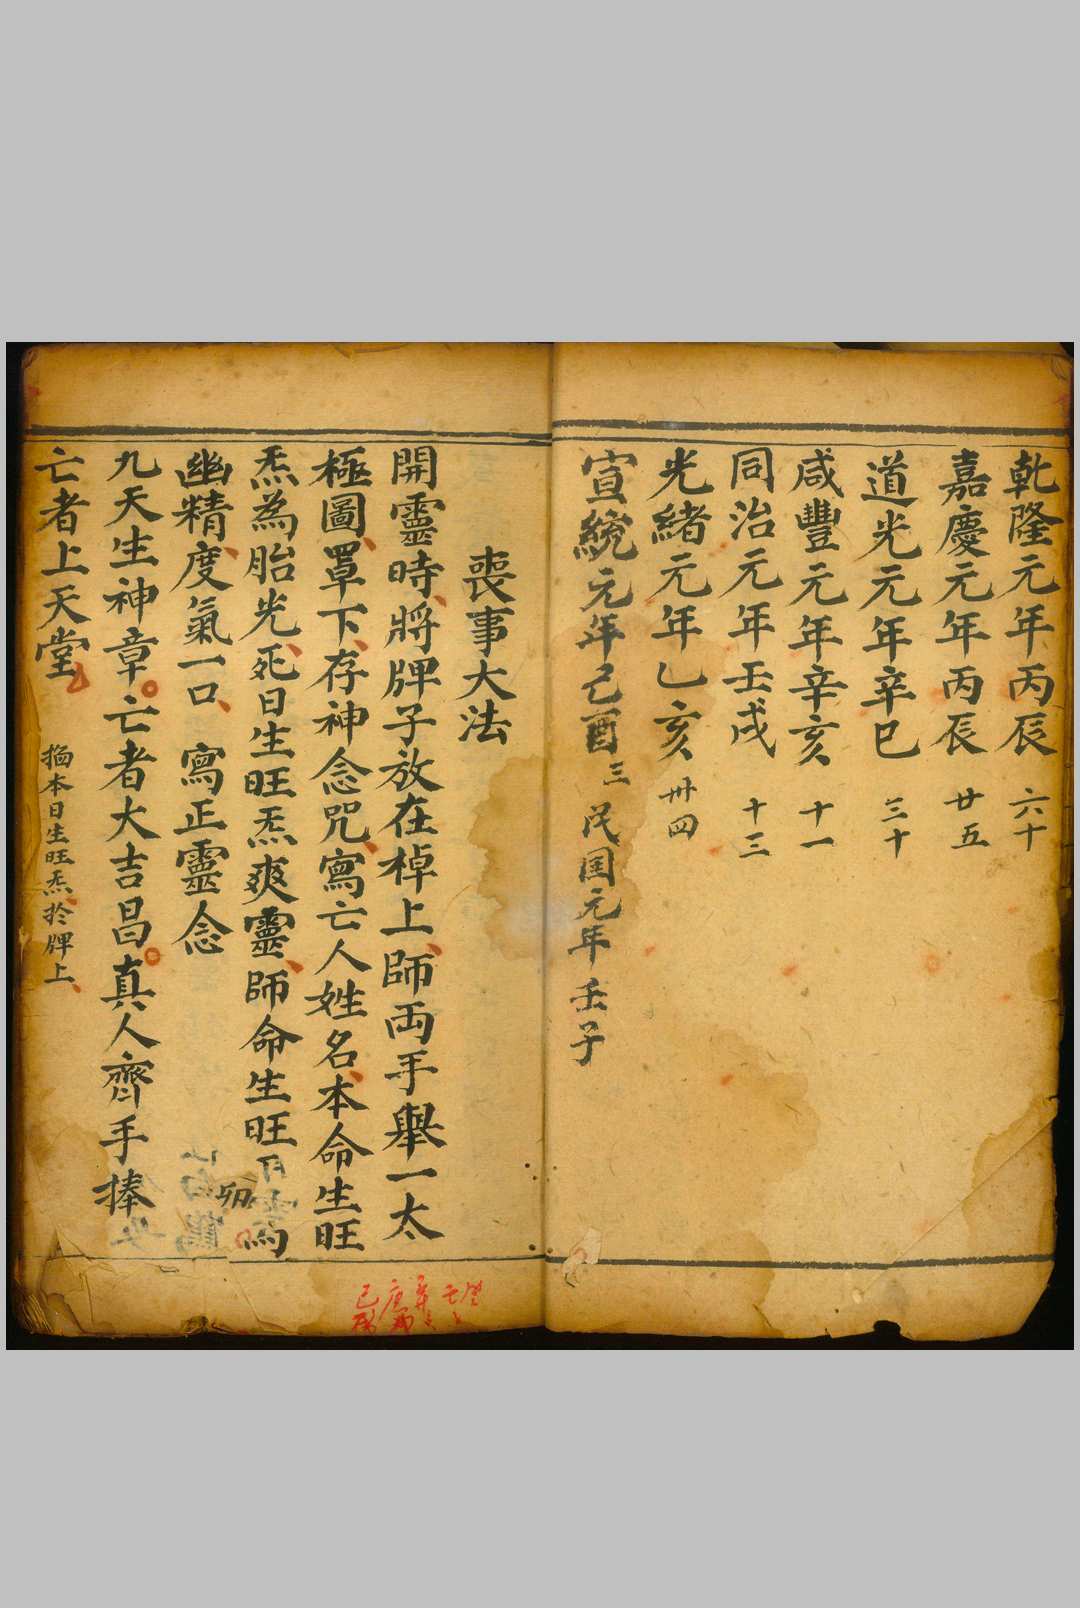 乾隆元年丙辰 六十
嘉慶元年丙辰 廿五
道光元年辛巳 三十
咸豐元年辛亥 十一
同治元年壬戌 十三
光緒元年乙亥 卅四
宣統元年己酉 三 民国元年壬子
喪事大法
開靈時將牌子放在棹上師両手舉一太
極圖罩下存神念咒寫亡人姓名本命生旺
炁為胎光死日生旺炁爽靈師命生旺炁為
幽精度氣一口 寫正靈念
九天生神章亡者大吉昌真人齊手捧
亡者上天堂 搯本日生旺炁於牌上